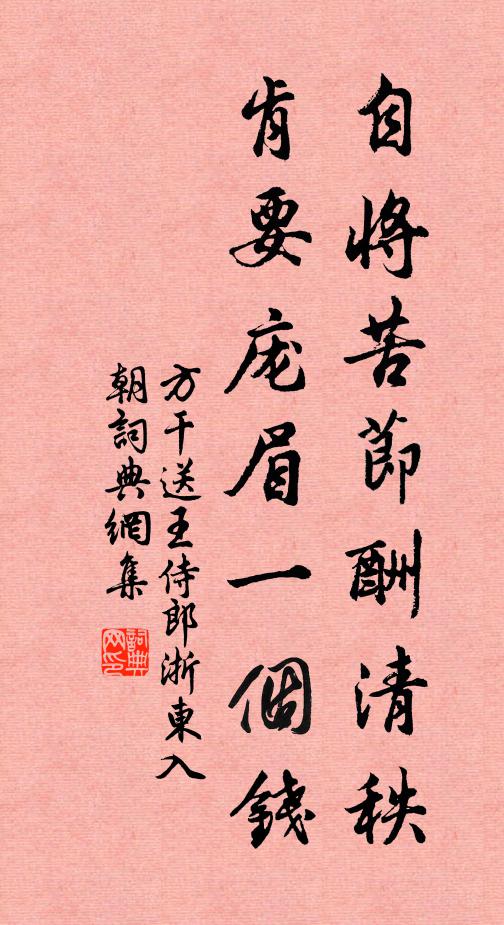 自將苦節酬清秩
肯要庞眉一個錢
方干送王侍郎浙東入
朝詞典網集
詞典
网印